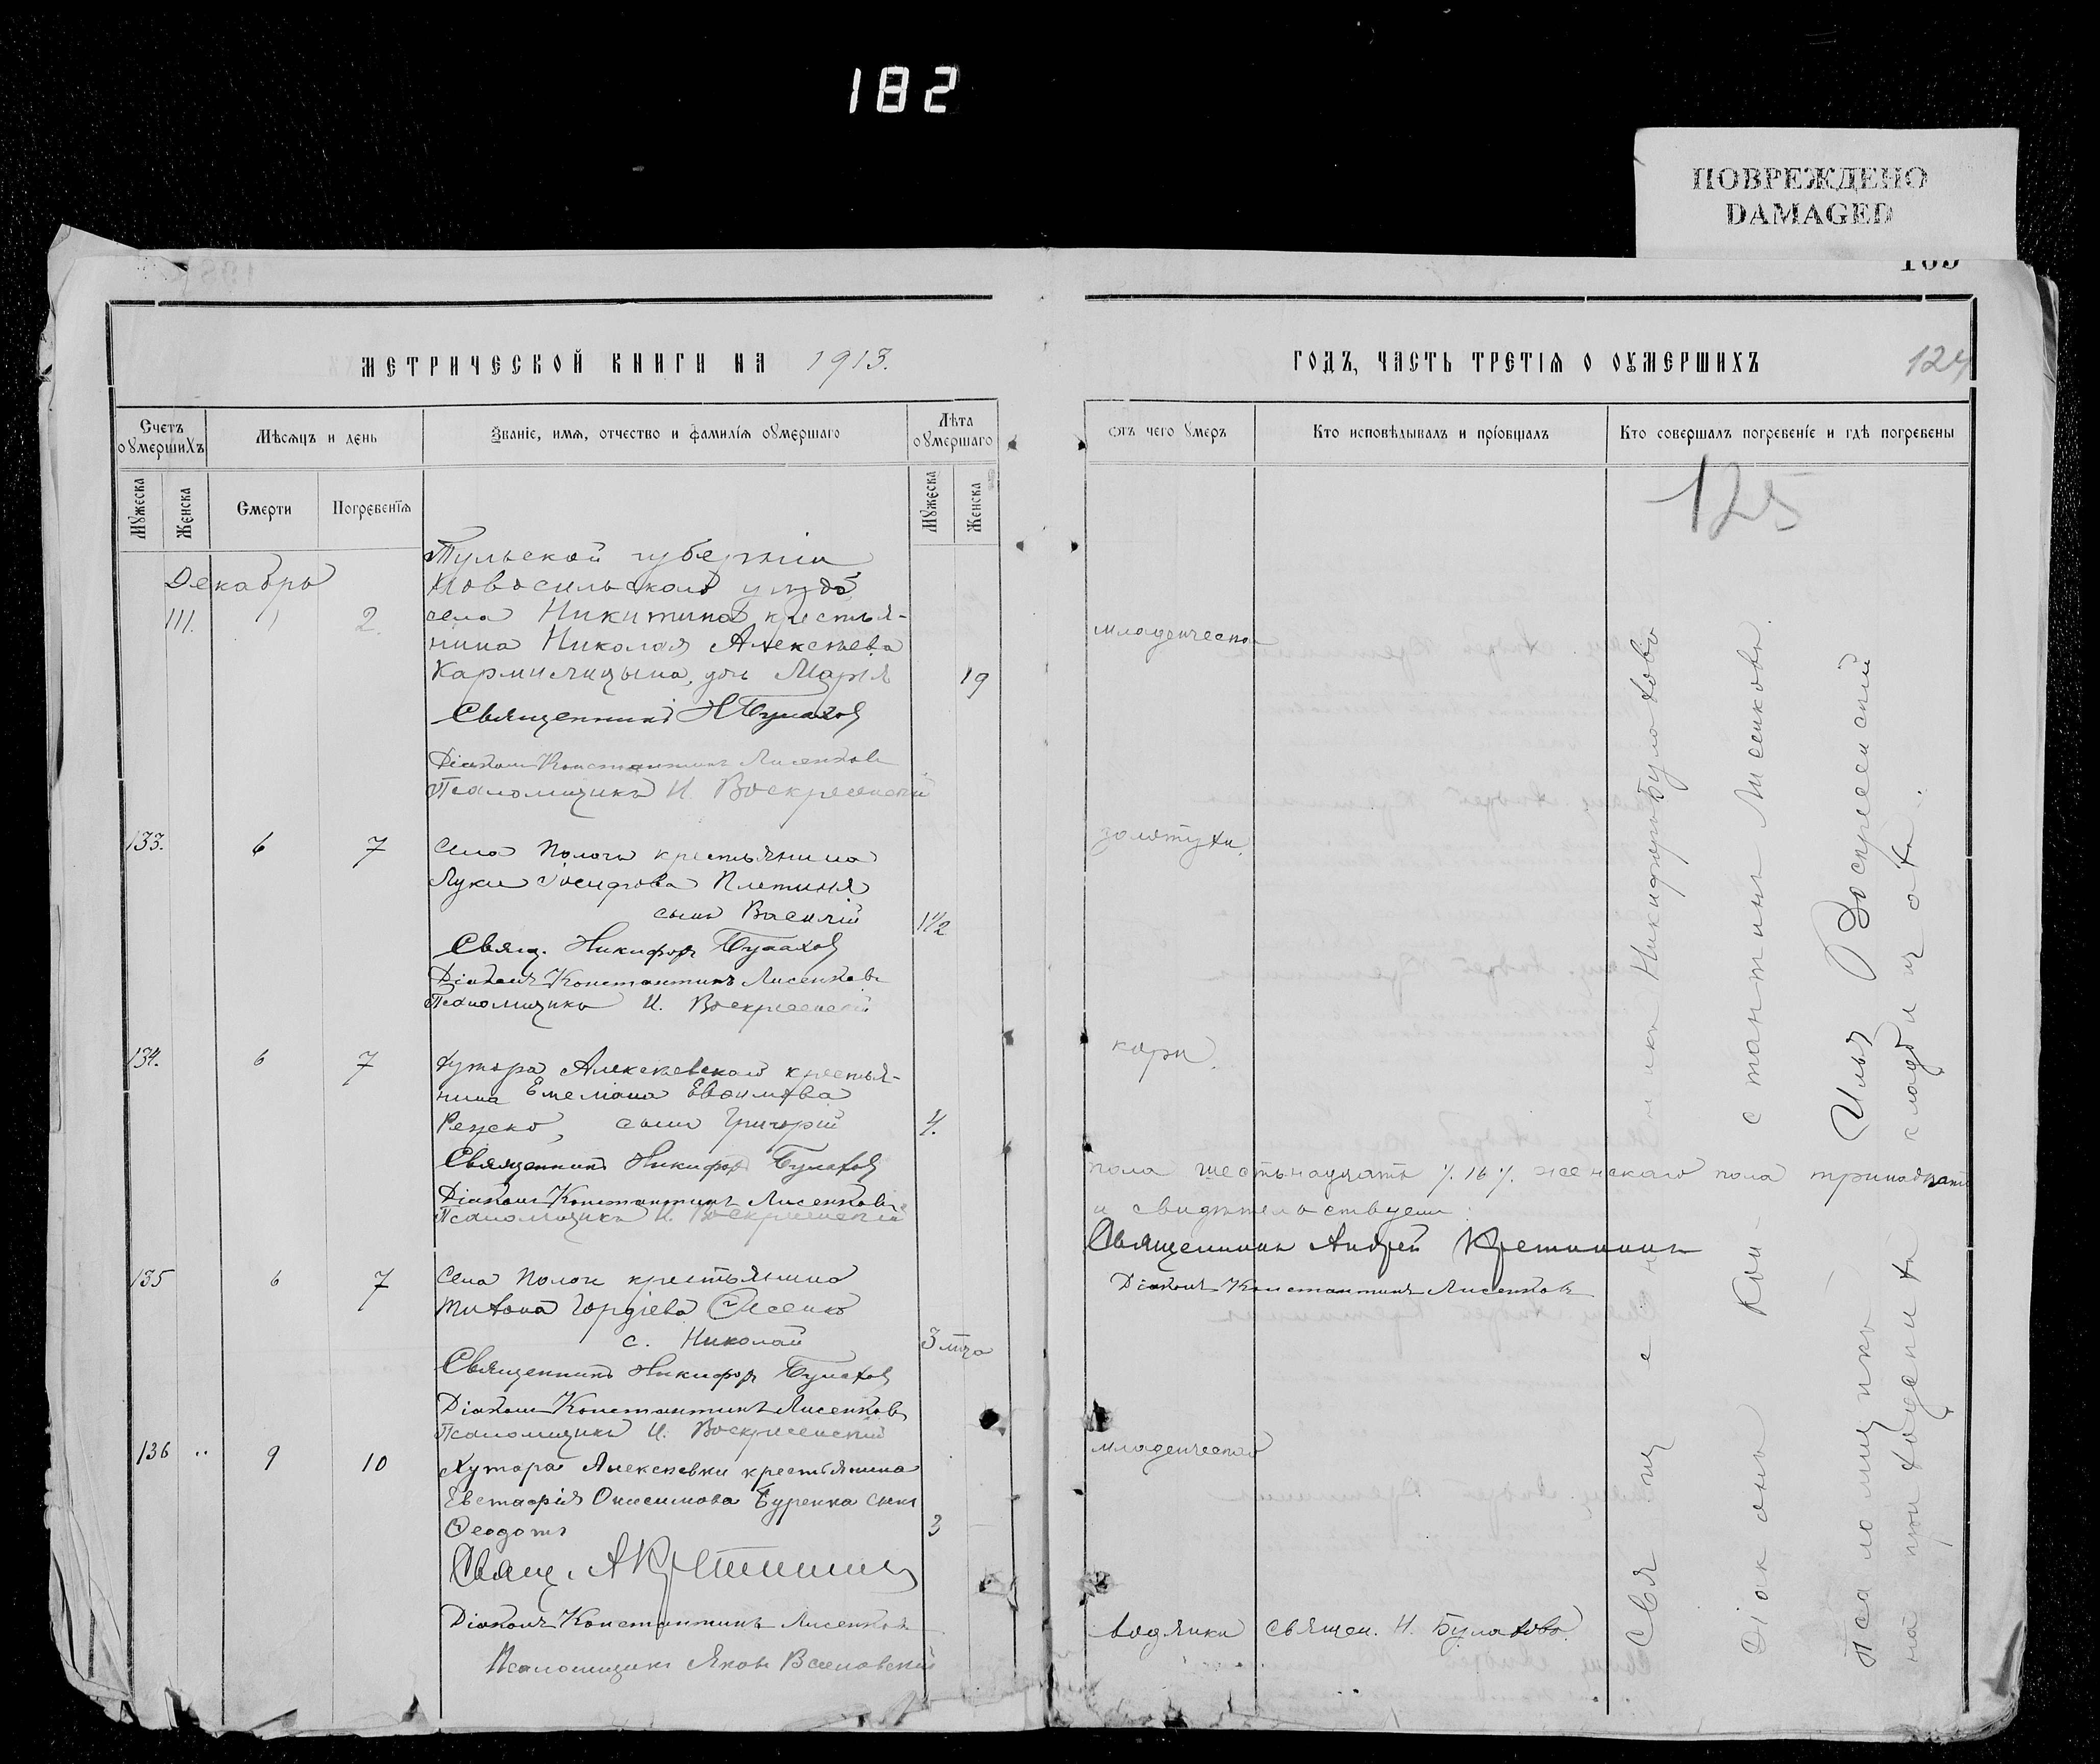 182
ПОВРЕЖДЕНО
DAMAGED
МЕТРИЧЕСКОЙ КНИГИ НА 1913.
Счетъ оумершихъ
Мѣсяцъ и день
Званіе, имя, отчество и фамилія оумершаго
Лѣта оумершаго
Мужеска
Женска
Смерти
Погребенія
Мужеска
Женска
Декабрь
111. 1 2.
Тульской губерніи
Новосильскаго уѣзда
села Никитина крестья-
нина Николая Алексѣева
дочь Марія 19
Священникъ Н Булаховъ
Діаконъ Константинъ Лисенковъ
Псаломщикъ И. Воскресенскій
133. 6 7
Села Пологъ крестьянина
Луки Іосифова Плетиня
сынъ Василій 1 1/2
Свящ. Никифоръ Булаховъ
Діаконъ Константинъ Лисенковъ
Псаломщикъ И. Воскресенскій
134. 6 7
Хутора Алексѣевскаго крестья-
нина Емеліана Евѳимова
сынъ Григорій 4.
Священникъ Никифоръ Булаховъ
Діаконъ Константинъ Лисенковъ
Псаломщикъ И. Воскресенскій
135 6 7
Села Пологъ крестьянина
Тихона Гордіева Ѳесенко
с. Николай 3 мца
Священникъ Никифоръ Булаховъ
Діаконъ Константинъ Лисенковъ
Псаломщикъ И. Воскресенскій
136 „ 9 10
Хутора Алексѣевки крестьянина
Евстафія Онисимова Буренка сынъ
Ѳеодотъ 3
Свящ. А Кретининъ
Діаконъ Константинъ Лисенковъ
Псаломщикъ Яковъ
ГОДЪ, ЧАСТЬ ТРЕТІЯ О ОУМЕРШИХЪ
124
отъ чего умеръ
Кто исповѣдывалъ и пріобщалъ
Кто совершалъ погребеніе и гдѣ погребены
125
младенческой
золотухи
кори
пола шестьнадцать /.16/. женскаго пола тринадцать
и свидѣтельствуемъ:
Священникъ Андрей Кретининъ
Діаконъ Константинъ Лисенковъ
младенческой
водянки священ. Н. Булаховъ.
Священникъ Никифоръ Булаховъ
Діаконъ Константинъ Лисенковъ.
Псаломщикъ Илья Воскресенскій
на приходскомъ кладбищѣ.